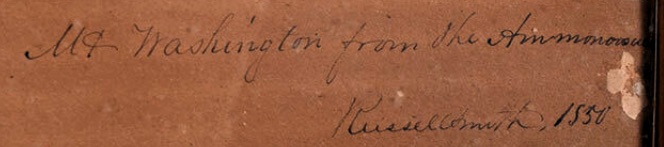 Mt Washington from the Ammonoosuc
Russell Smith, 1850